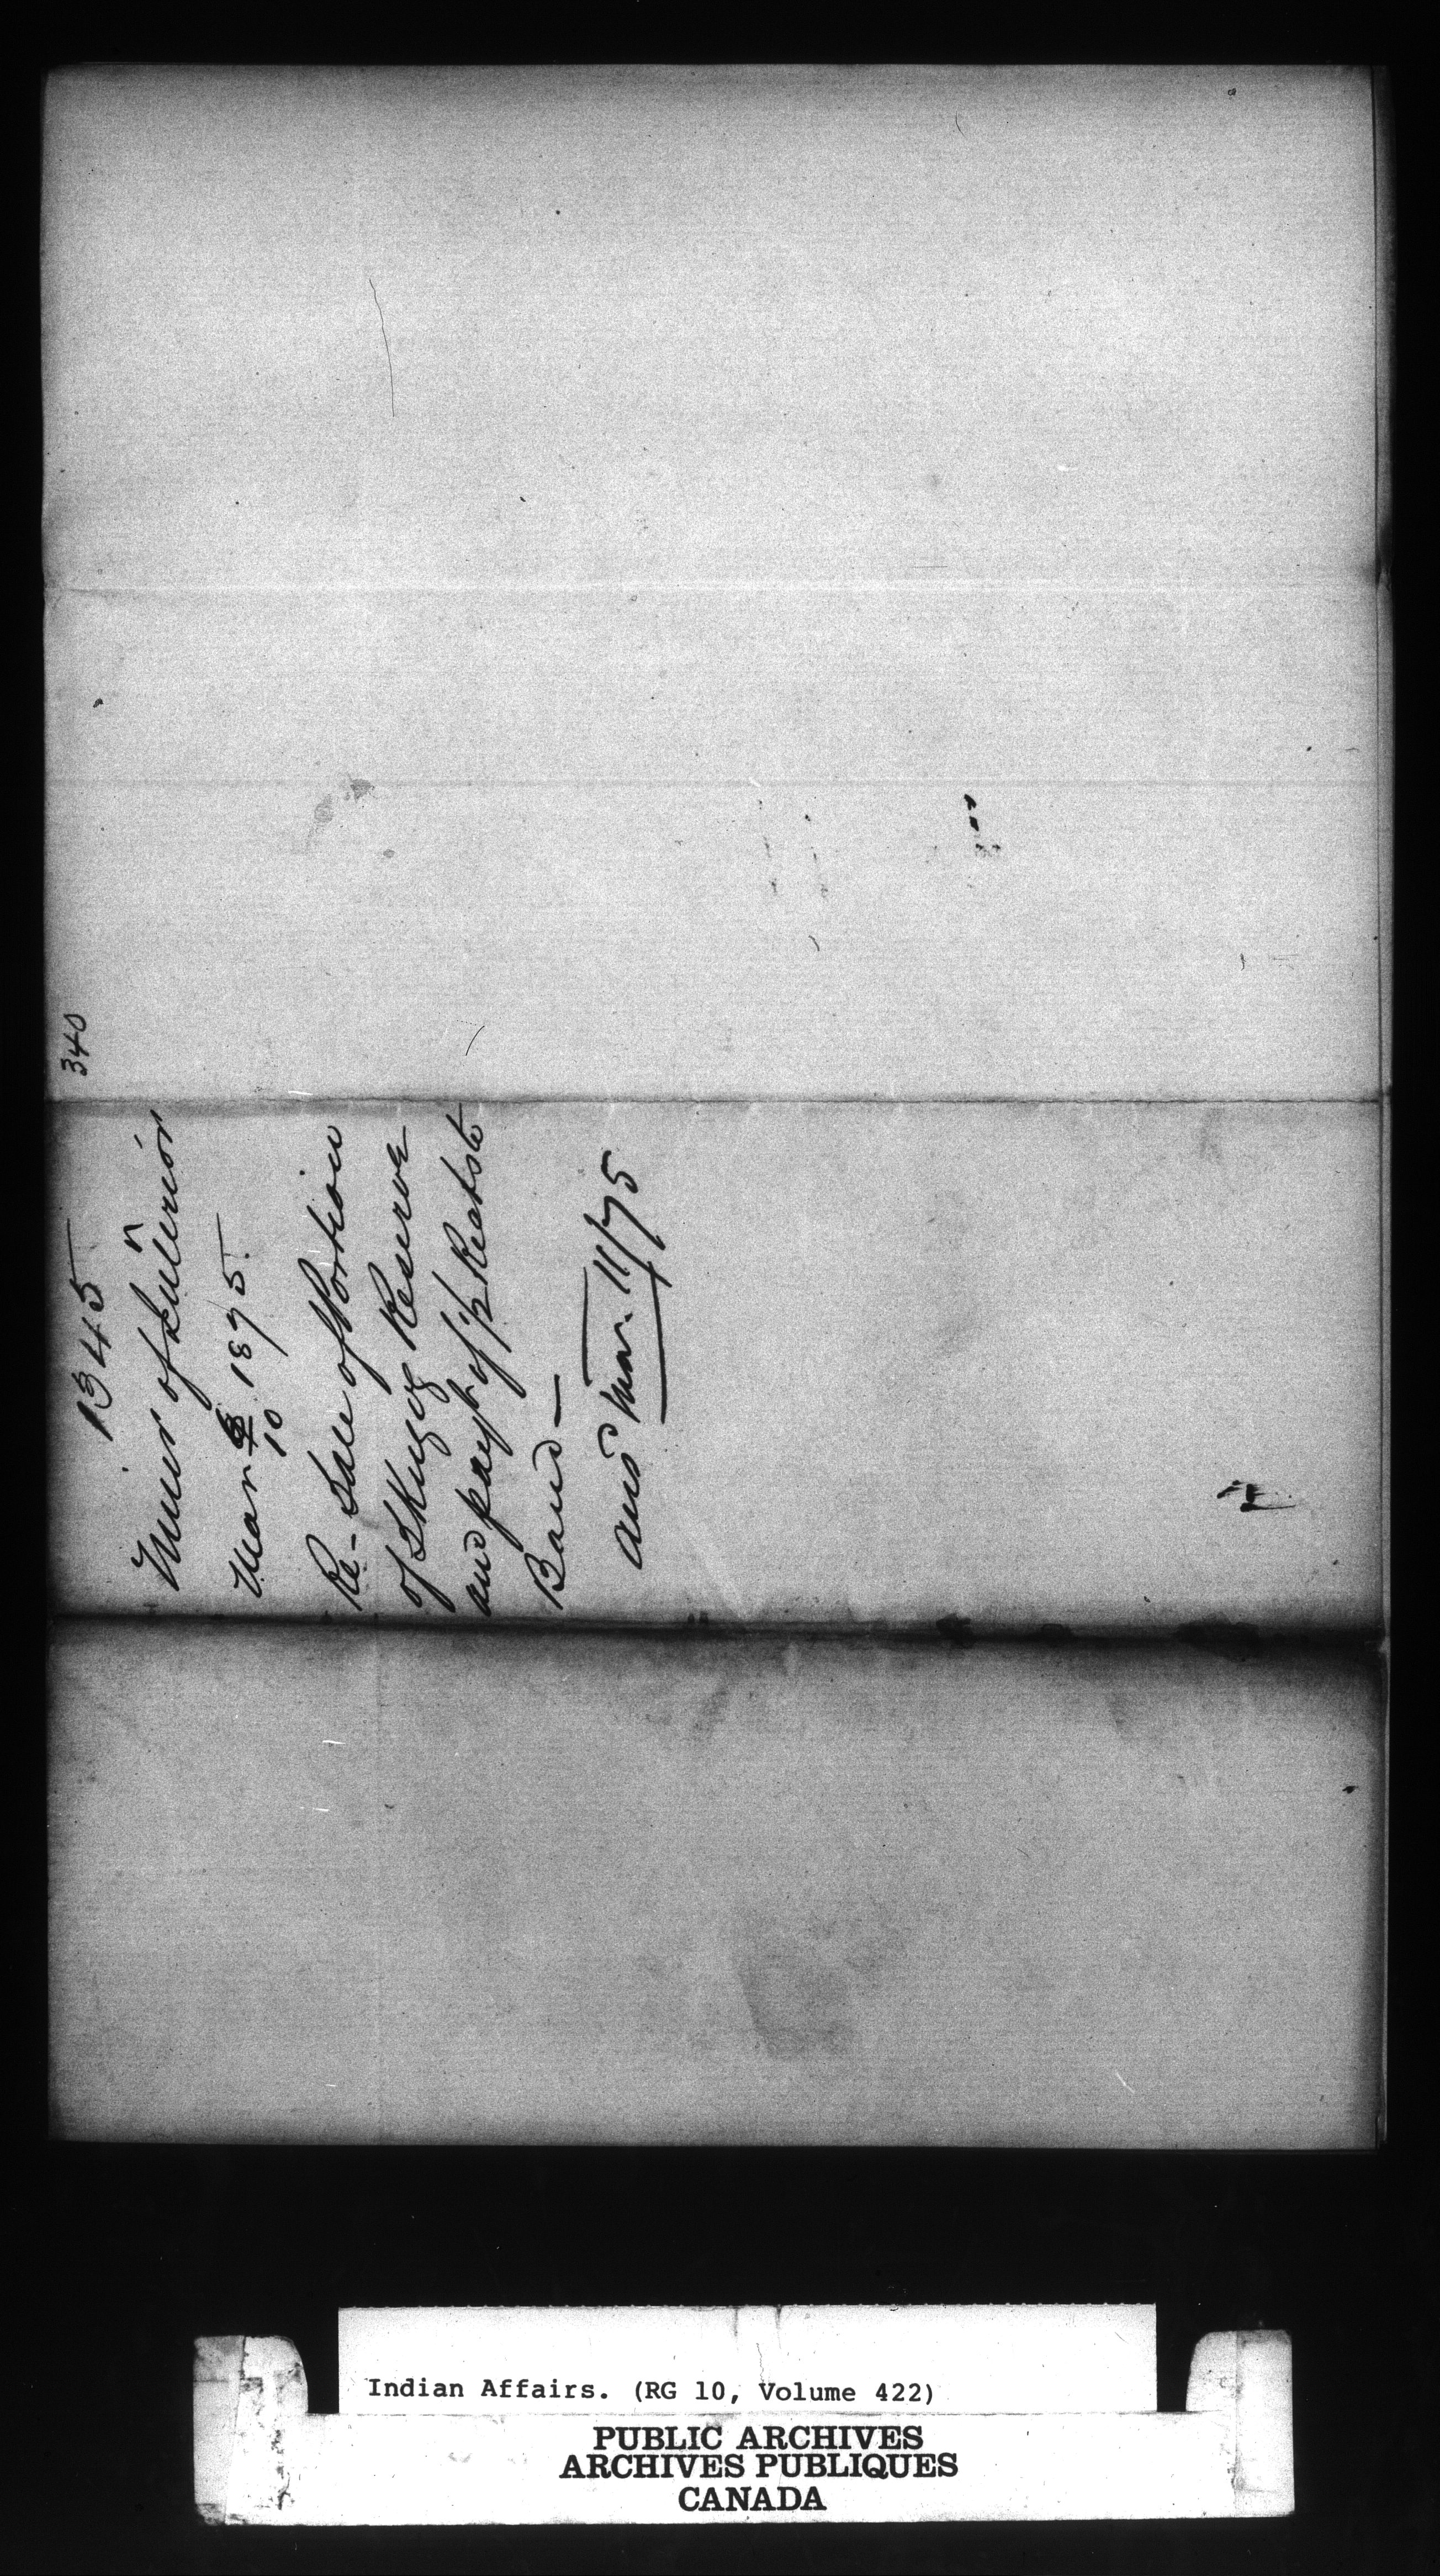 340
1345
Minr of Interior
n
Mar 8 1875.
10
Re- Sale of Portion
of Skugog Reserve
and payt of ½ to
Band —
ansd Mar. 11/75
Indian Affairs. (RG 10, Volume 422)
PUBLIC ARCHIVES
ARCHIVES PUBLIQUES
CANADA